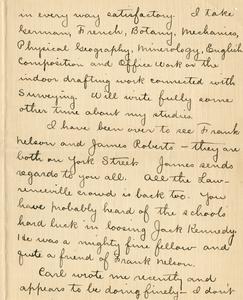 in every way satisfactory. I take
German, French, Botany, Mechanics,
Physical Geography, Minerology, English
Composition and Office Work or the
indoor drafting work connected with
Surveying. Will write fully some
other time about my studies.
I have been over to see Frank
Nelson and James Roberts – they are
both on York Street. James sends
regards to you all. All the Law-
renceville crowd is back too. You
have probably heard of the schools
hard luck in loosing Jack Kennedy.
He was a mighty fine fellow and
quite a friend of Frank Nelson.
Earl wrote me recently and
appears to be doing finely – I don't